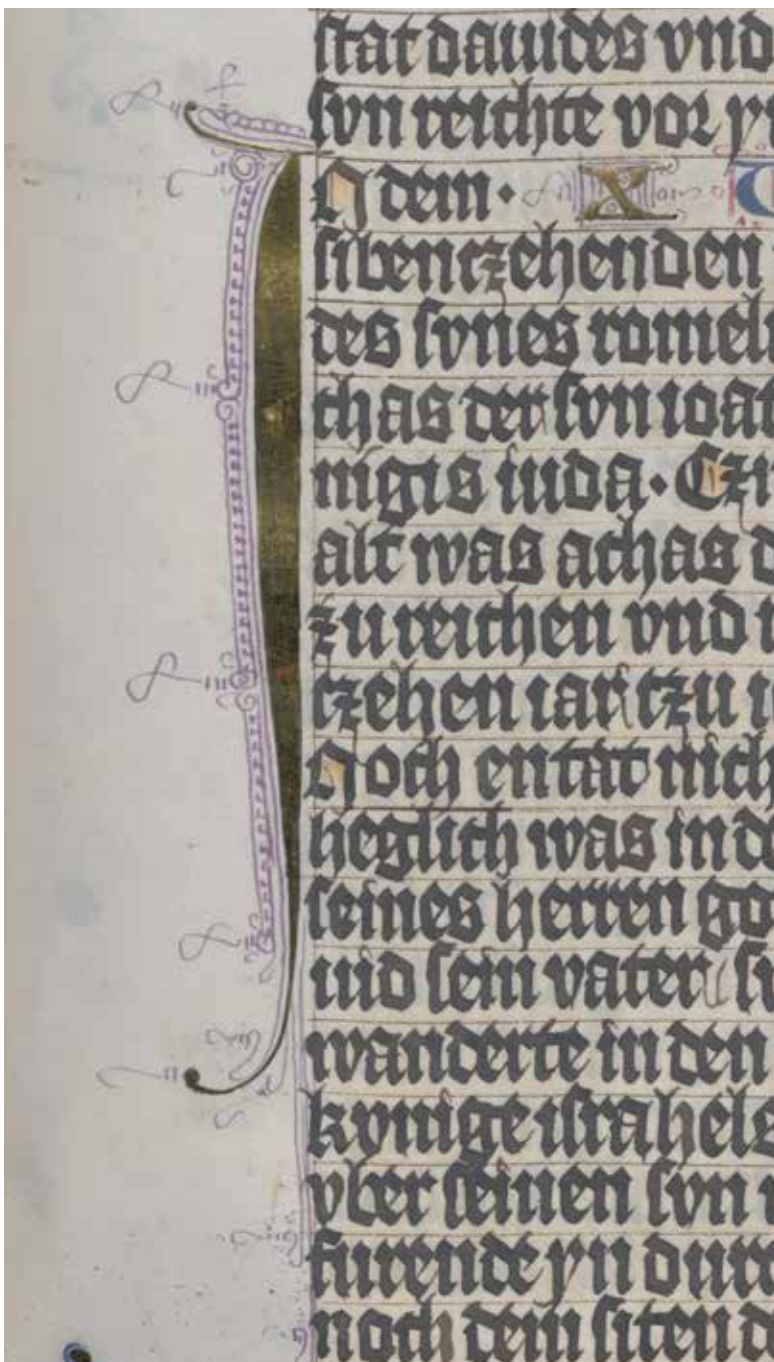 ſtat dauides vnd
ſvn reichte vor
I N dem· X
ſibenczehenden
des ſvnes romel
chas der ſvn ioat
nigis iuda· Cz
alt was achas d
zu reichen vnd
czehen iar czu
Noch entat nich
heglich was in d
ſeines herren go
uid ſein vater
wanderte in den
kvnige iſrahels
vber ſeinen ſvn
furende yn dur
noch dem ſiten d